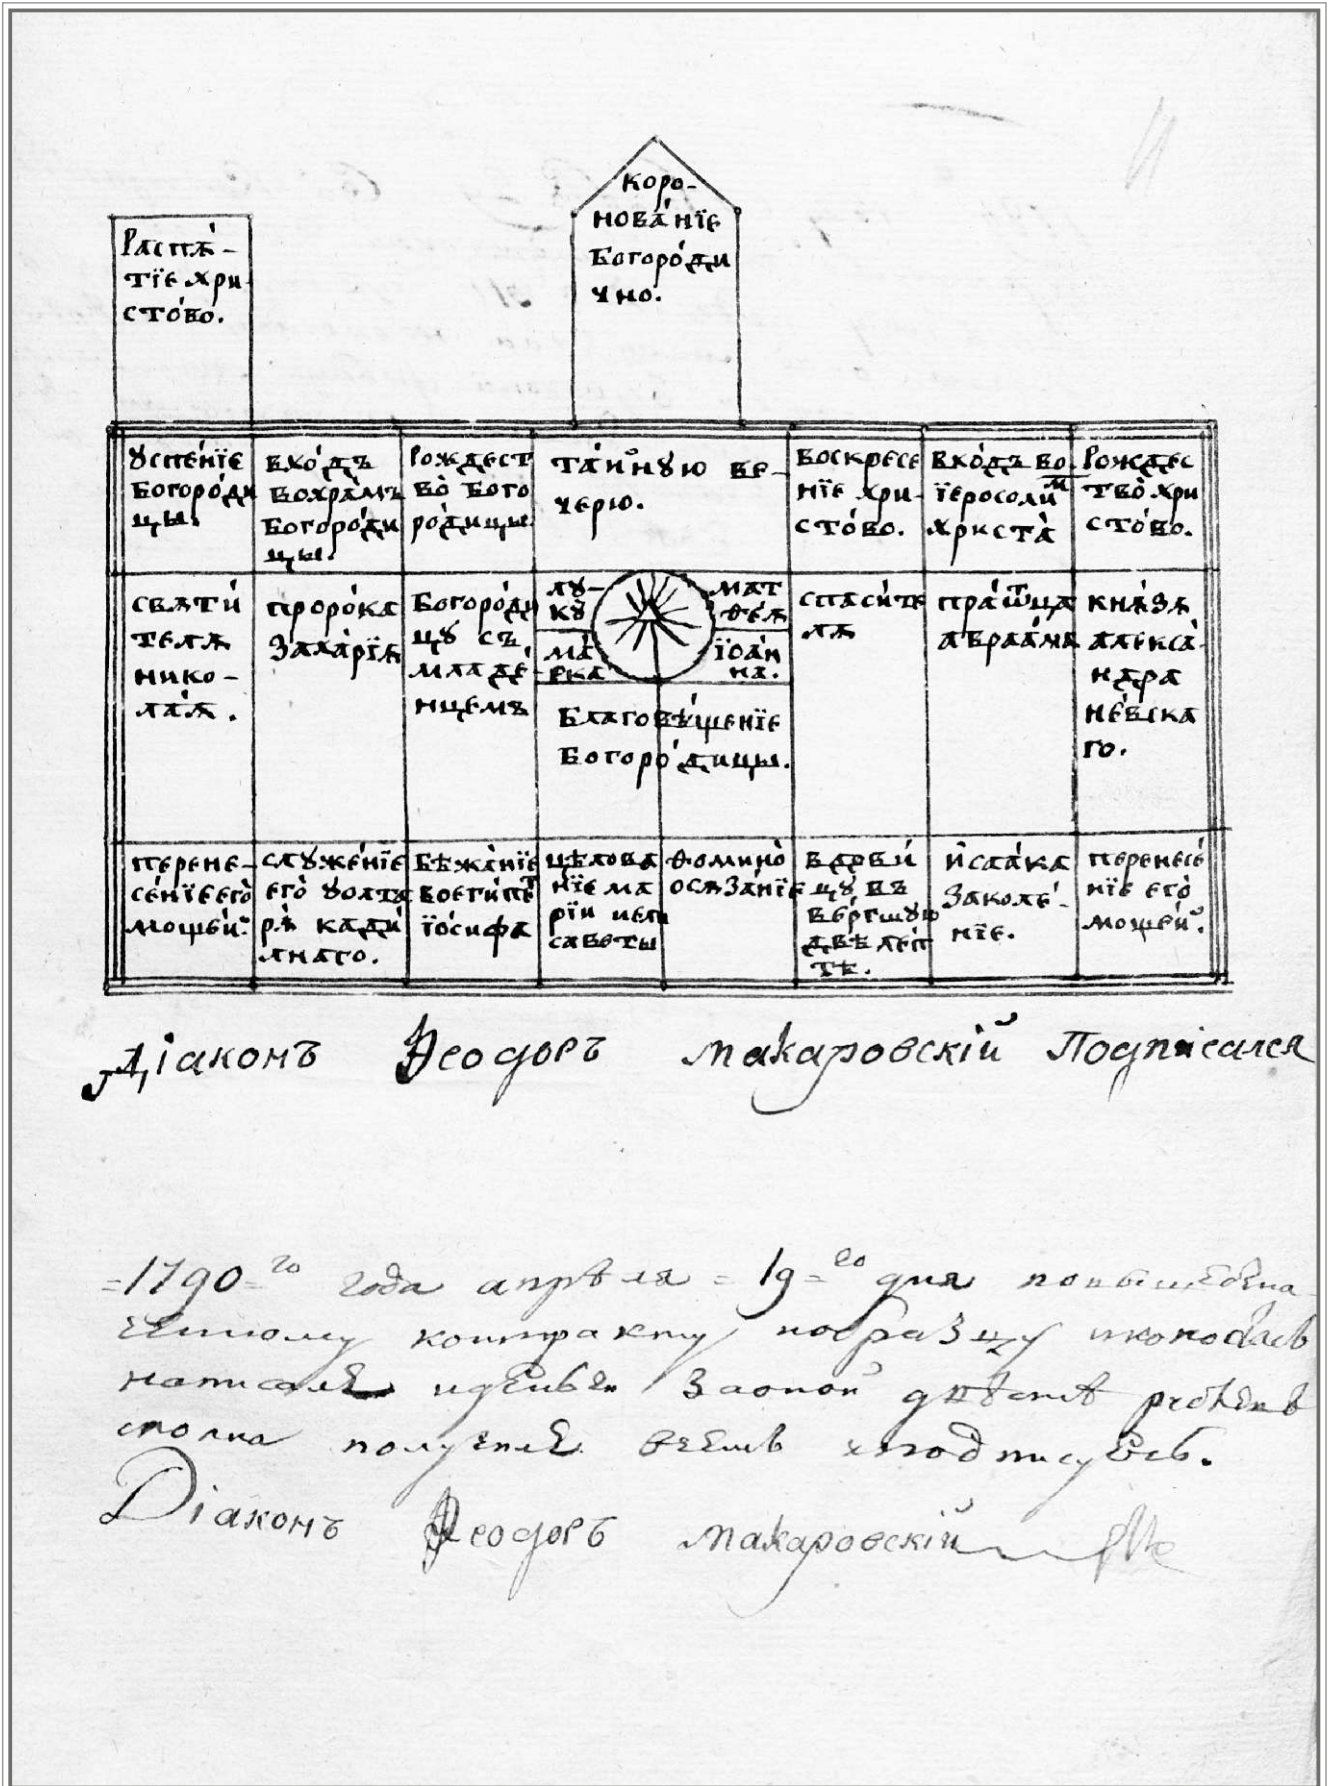 Коро-
нова́нїе
Богоро́ди
чно.
Распѧ́-
тїе хри
сто́во.
Ꙋспе́нїе
Богоро́ди
цы.
вхо́дъ
вохра́мъ
Богоро́ди
цы.
Рождест
во̀ Бого
ро́дицы.
та́йнꙋю ве-
черю.
Воскресе
нїе хри-
сто́во.
вхо́дъ во
їеросоли́м
христа̀
Рождес
тво̀ хри
сто́во.
свѧти́
телѧ
нико-
ла́ѧ.
проро́ка
Заха́рїѧ
Богоро́ди
цꙋ съ
младе́-
нцемъ
лꙋ-
кꙋ̀
мат
ѳе́ѧ
ма́
рка
їоа́н
на.
Благовѣ́щенїе
Богоро́дицы.
спаси́те
лѧ
пра́ѿца
авраа́ма
кнѧ́зѧ
алекса́-
ндра
не́вска
го.
перене-
се́нїе его̀
моще́й.
слꙋже́нїе
его̀ ꙋолта
рѧ̀ кади́
лнаго.
Бѣжа́нїе
воеги́петъ
їо́сифа
цѣлова
нїе ма
рїи иели
саветы
Ѳомино̀
осѧза́нїе
вдови́
цꙋ въ
ве́ргшꙋю
двѣ леп
тѣ.
и҆саа́ка
заколе́-
нїе.
перенесе́
нїе его̀
моще́й.
Дїаконъ Ѳеодоръ Макаровскїй Подписался
=1790=го года апрѣля =19=го дня повышеозна
ченному контракту пообразцу иконостасъ
написалъ иденьги заоной двѣсте рублевъ
сполна получилъ вчемъ иподписуюсь.
Дїаконъ Ѳеодоръ Макаровскїй